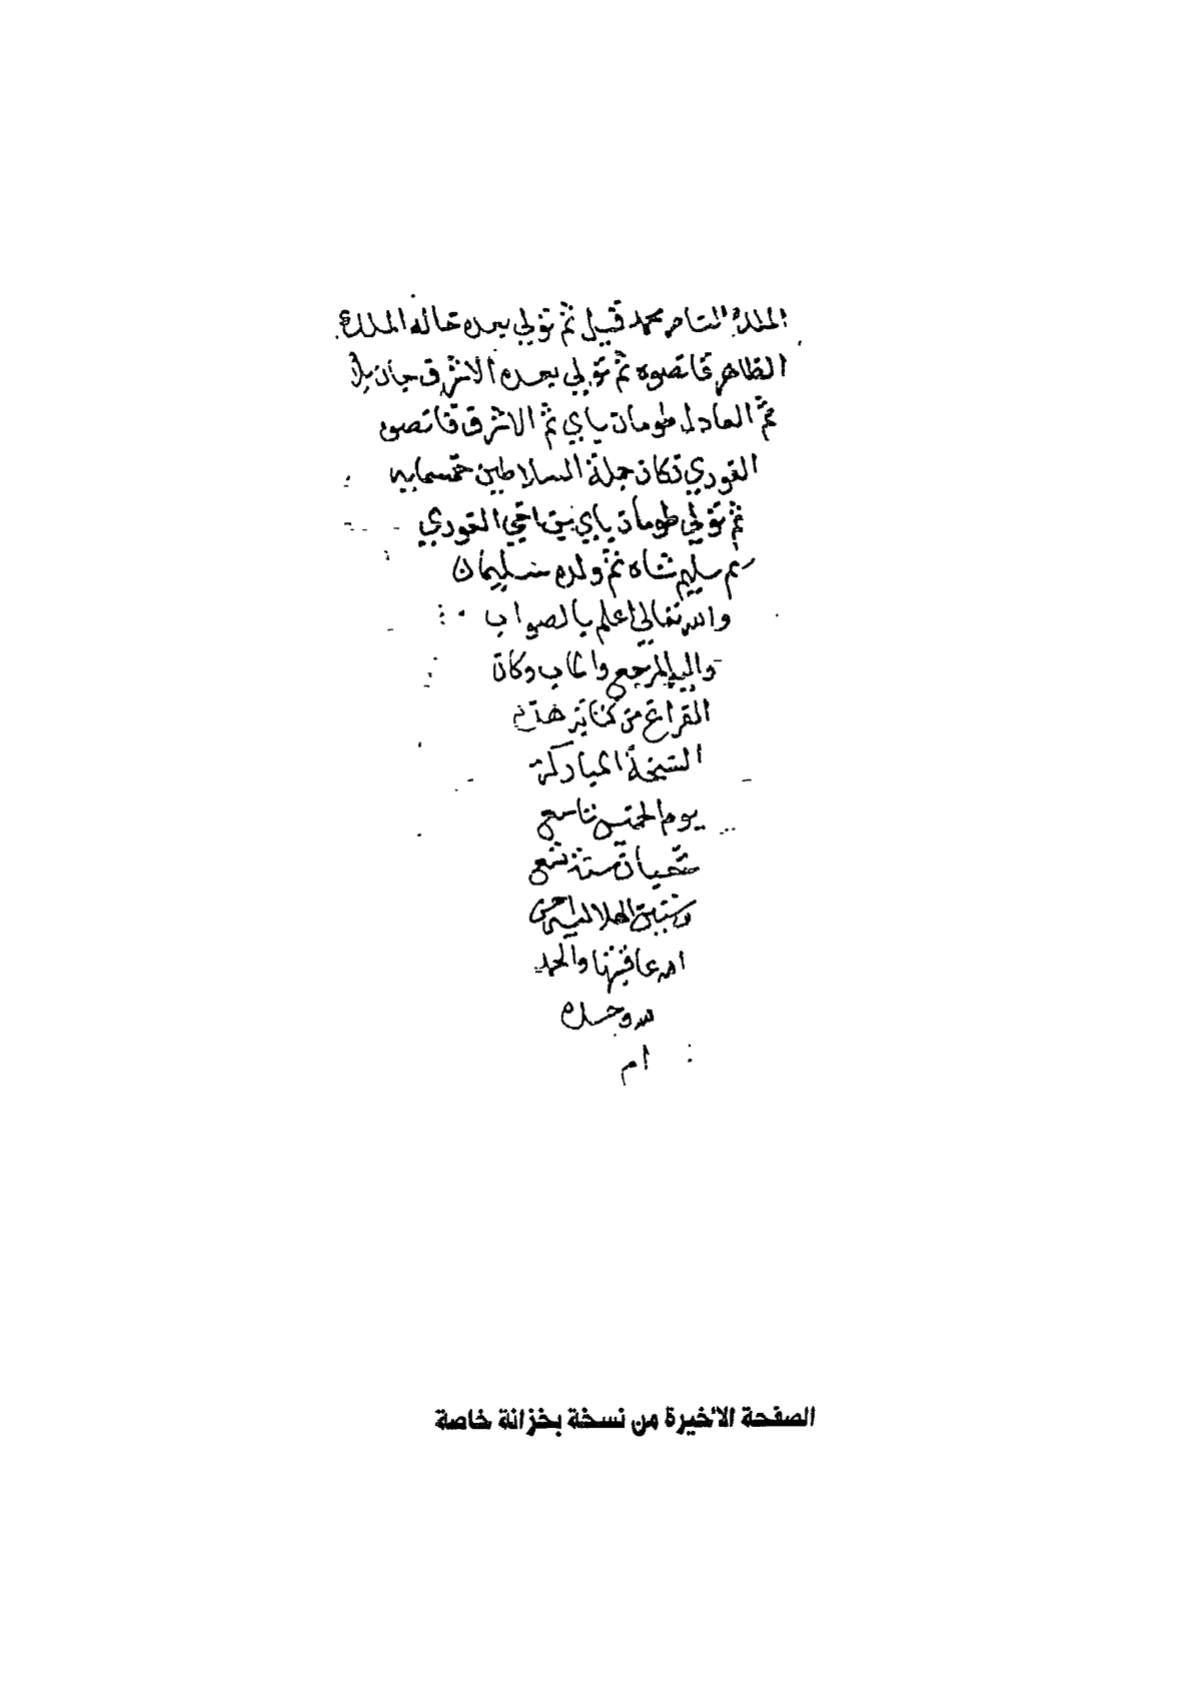 الملك الناصر محمد قتيل ثم تولي بعده خاله الملك
الظاهر قانصوه ثم تولي بعده الاشرف جان بلا
ثم العادل طومان باي ثم الاشرف قانصوه
الغوري فكان جملة السلاطين خمسمايه
ثم تولي طومان باي بن اخي الغوري
ثم سليم شاه ثم ولده سليمان
والله تعالي اعلم بالصواب
واليه المرجع والماب وكان
الفراغ من كتابة هذه
النسخة المباركة
يوم الخميس تاسع
شعبان سنة تسع
وستين الهلاليه احسن
الله عاقبتها والحمد
لله وحده
ام
الصفحة الأخيرة من نسخة بخزانة خاصة